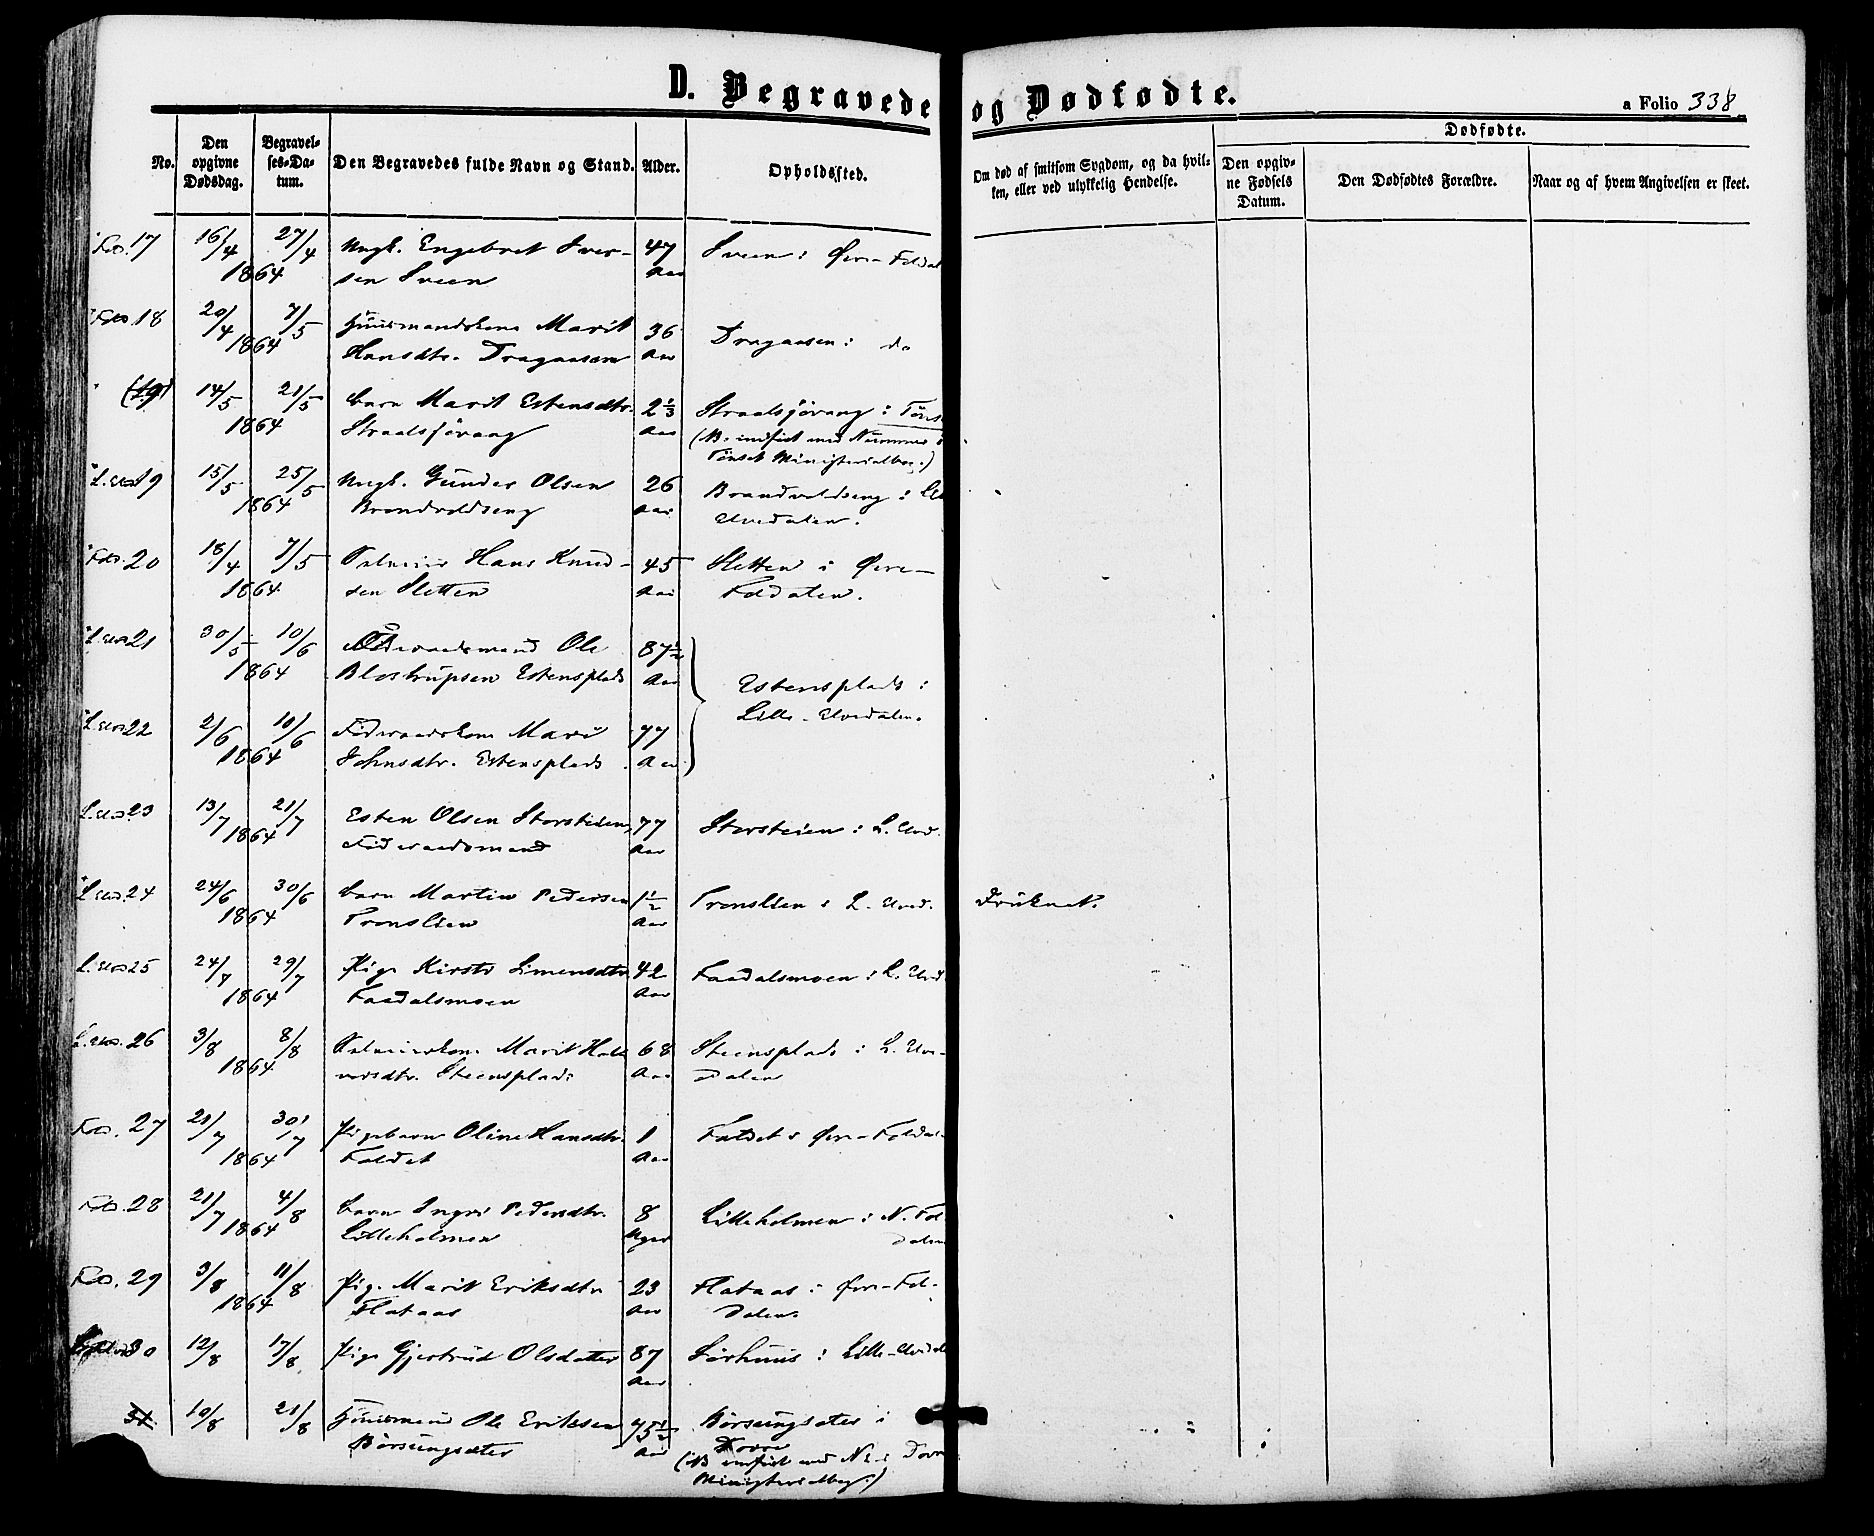 D. Begravede og Dødfødte.
a Folio 338
No.
Den opgivne Dødsdag.
Begravelses-Datum.
Den Begravedes fulde Navn og Stand.
Alder.
Opholdssted.
Om død af smitsom Sygdom, og da hvilken, eller ved ulykkelig Hendelse.
Dødfødte.
Den opgivne Fødsels Datum.
Den Dødfødtes Forældre.
Naar og af hvem Angivelsen er skeet.
17 16/4 27/4 Ungk. Engebret Iver- 47 Sveen i Øvre-Foldal
1864 sen Sveen Aar
18 20/4 7/5 Huusmandskone Marit 36 Dragaasen i do
1864 Hansdtr. Dragaasen Aar
(19) 14/5 21/5 Barn Marit Estensdtr. 2 1/3 Straalsjøvang i
1864 Straalsjøvang Aar (NB. indført med Nummer i
Tønset Ministerialbog.)
19 15/5 25/5 Ungk. Gunder Olsen 26 Brandvoldseng i
1864 Brandvoldseng Aar Elvedalen.
20 18/4 7/5 Selveier Hans Knud- 45 Sletten i Øvre-
1864 sen Sletten Aar Foldalen.
21 30/5 10/6 Føderaadsmand Ole 87 1/2
1864 Estensplads Aar Estensplads i
Lille-Elvedalen.
22 2/6 10/6 Føderaadskone Mari 77
1864 Johnsdtr. Estensplads Aar
23 13/7 21/7 Esten Olsen Storsteien, 77 Storsteien i L. Elvd.
1864 Føderaadsmand Aar
24 24/6 30/6 Barn Martin Pedersen 1 1/2 Tronslien i L. Elved. Druknet.
1864 Tronslien Aar
25 24/7 29/7 Pige Kirsti Simensdtr. 42 Faadalsmoen i L. Elvd.
1864 Faadalsmoen Aar
26 3/8 8/8 Selveierkone Marit Hal- 68 Steensplads i L. Elve-
1864 vorsdtr. Steensplads Aar dalen
27 21/7 30/7 Pigebarn Oline Hansdtr. 1 Faldet i Øvre-Foldal
1864 Faldet Aar
28 21/7 4/8 Barn Ingri Pedersdtr. 8 Lilleholmen i N. Fol-
1864 Lilleholmen Uger dalen
29 3/8 11/8 Pige Marit Eriksdtr. 23 Flataas i Øvre-Fol-
1864 Flataas Aar dalen.
30 12/8 17/8 Pige Gjertrud Olsdatter 87 Sørhuus i Lille-Elvdal
Aar
31 19/8 21/8 Huusmand Ole Eriksen 75 1/2 Børsungsæter i
Børsungsæter Aar Dovre
(NB indført med No i Dovre
Ministerialbog.)